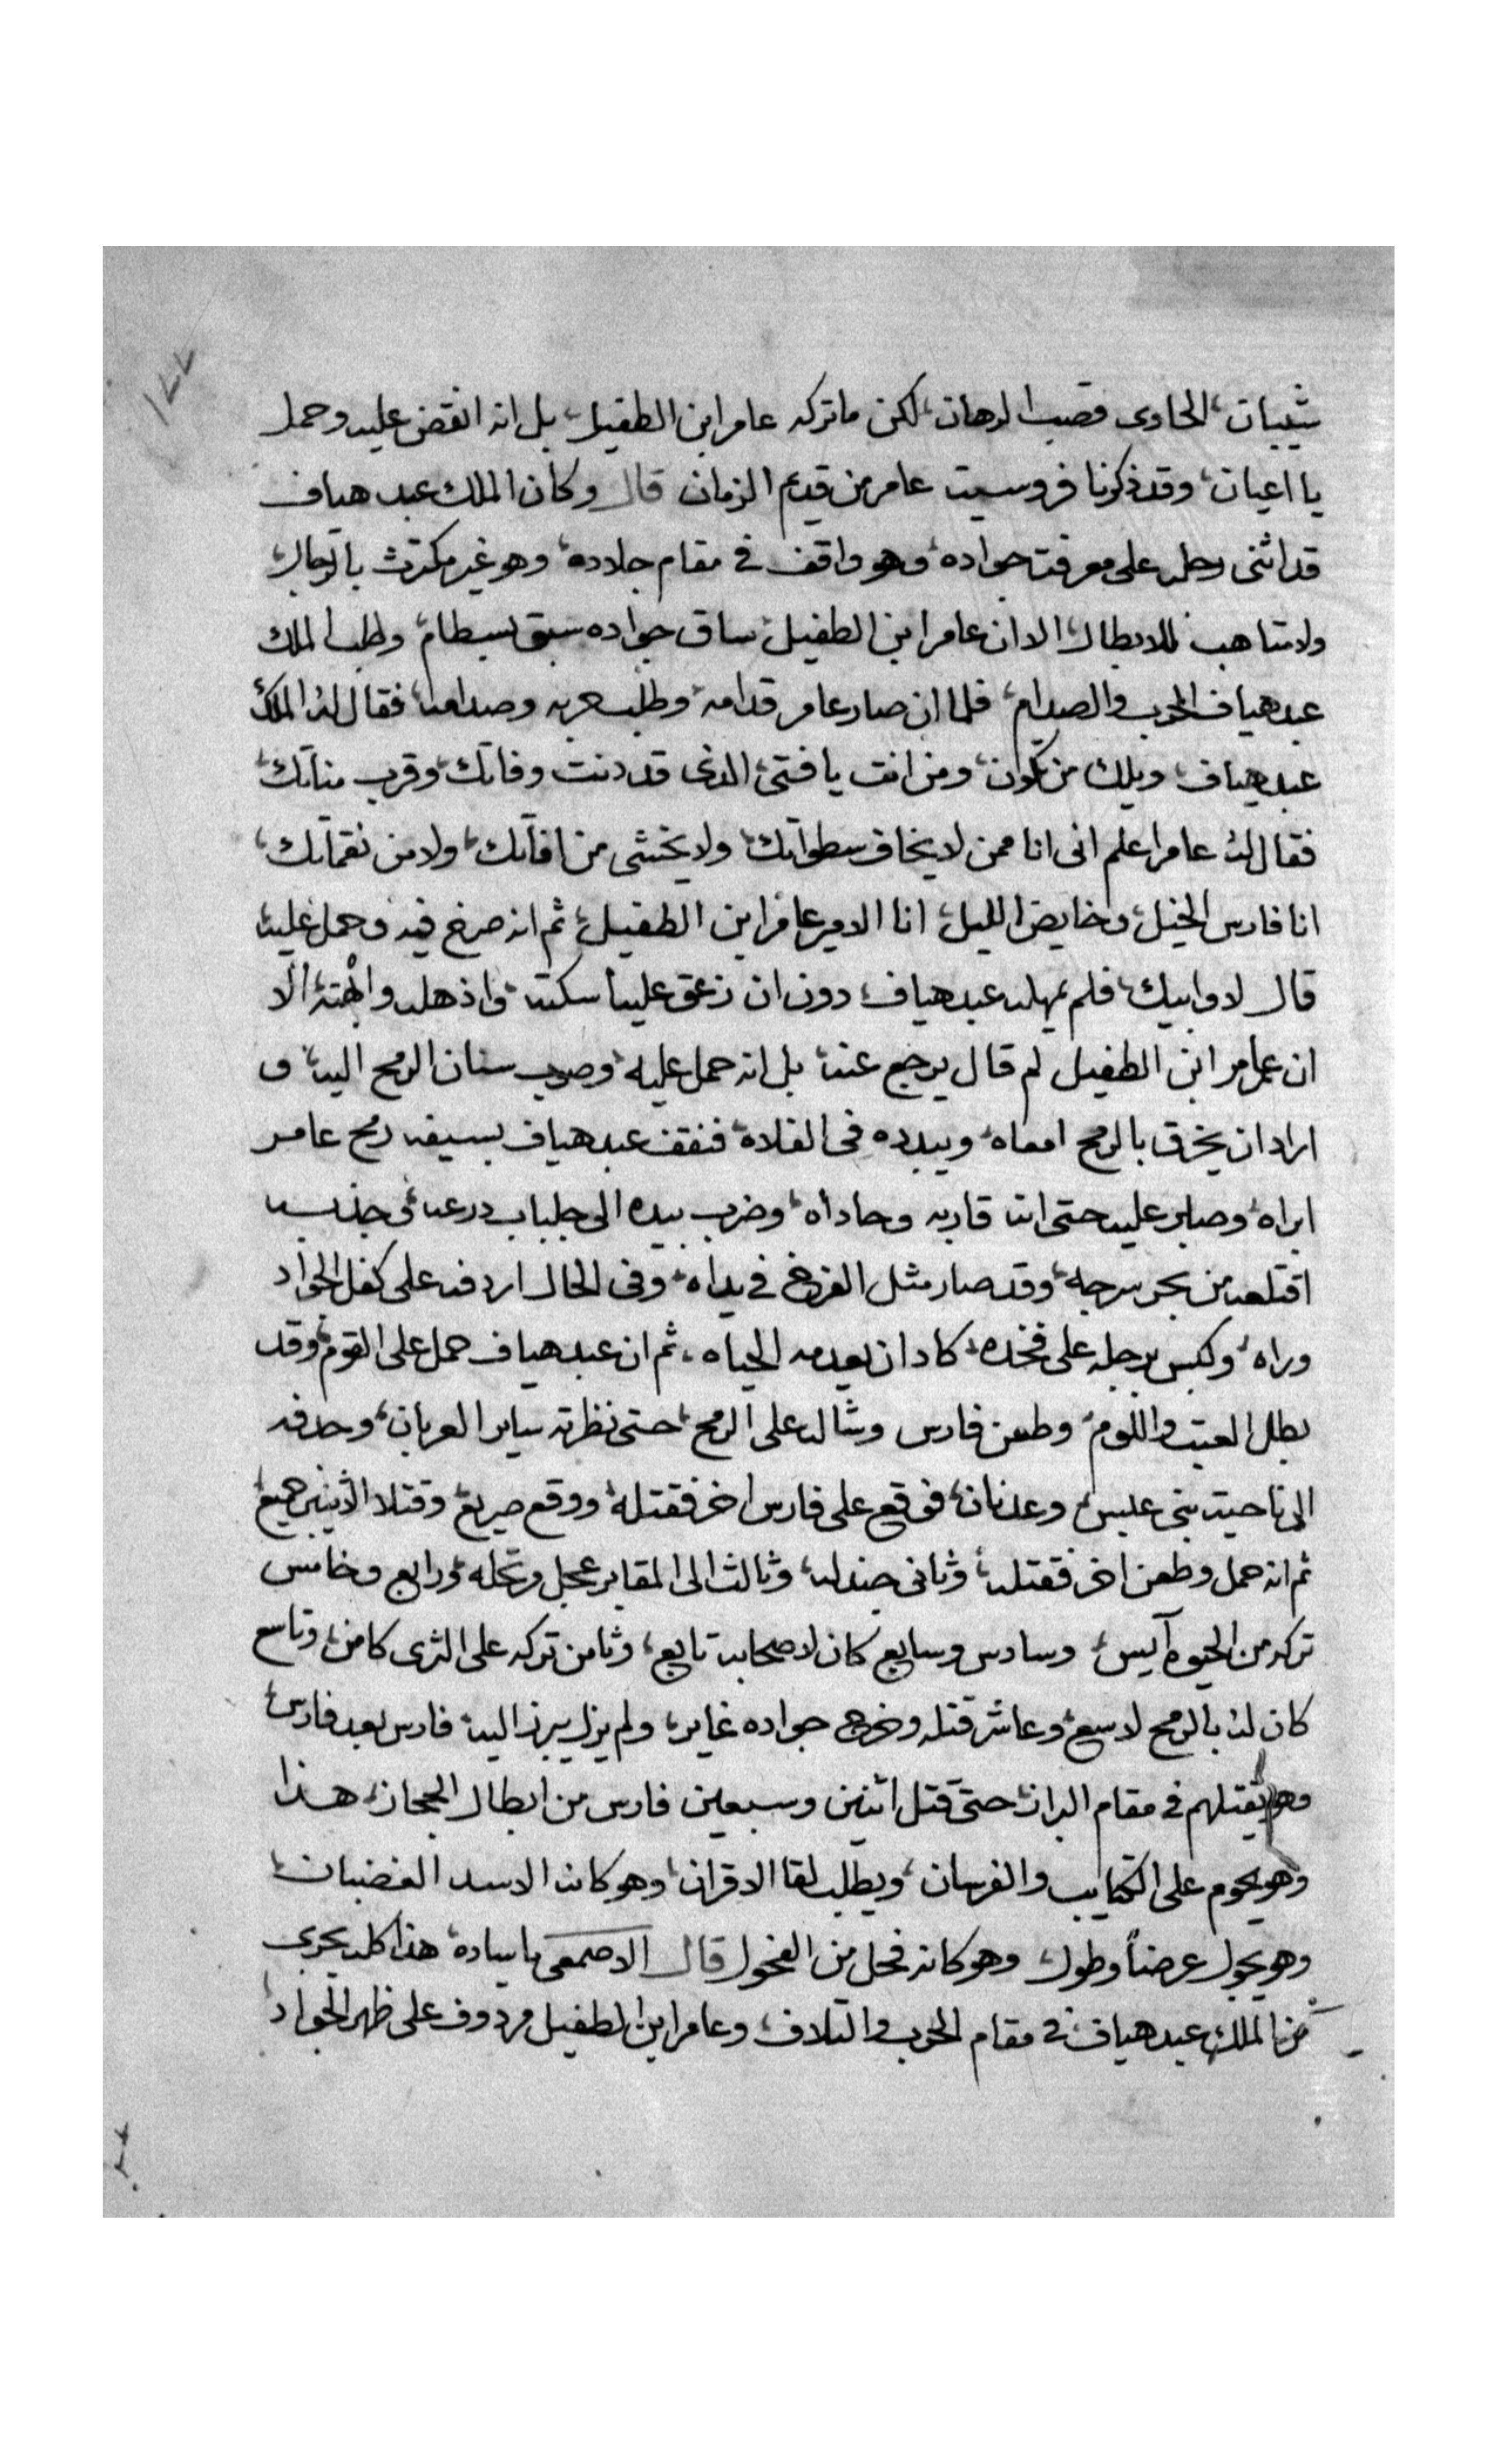 ١٢٢
شيبان، الحاوى قصب الرهان، لكن ما تركه عامر ابن الطفيل، بل انه انقض عليه وحمل
يا اعيان، وقد ذكرنا فروسيت عامر من قديم الزمان قال وكان الملك عبد هياف
قد اثنى رجله على معرفت جواده، وهو واقف فى مقام جلاده، وهو غير مكترث بالرجال،
ولا متاهب للابطال، الا ان عامر ابن الطفيل، ساق جواده سبق بسطام، وطلب الملك
عبد هياف الحرب والصدام، فلما ان صار عامر قدامه، وطلب حربه وصدامه، فقال له الملك
عبد هياف، ويلك من تكون، ومن انت يا فتى، الذى قد دنت وفاتك، وقرب مناتك،
فقال له عامر اعلم انى انا ممن لا يخاف سطواتك، ولا يخشى من افاتك، ولا من نقماتك،
انا فارس الخيل، وخايض الليل، انا الامير عامر ابن الطفيل، ثم انه صرخ فيه وحمل عليه
قال لا وابيك، فلم يمهله عبد هياف، دون ان زعق عليه اسكته، واذهله وابهته، الا
ان عامر ابن الطفيل لم قال يرجع عنه، بل انه حمل عليه، وصوب سنان الرمح اليه، و
اراد ان يخرق بالرمح امعاه، ويبدده فى الفلاه، فنقف عبد هياف بسيفه رمح عامر
ابراه، وصابر عليه حتى اته قاربه وحاداه، وضرب بيده الى جلباب درعه، وجذبه
اقتلعه من بحر سرجه، وقد صار مثل الفرخ فى يداه، وفى الحال اردفه على كفل الجواد
وراه، ولكبس برجله على فخده، كاد ان يعدمه الحياه، ثم ان عبد هياف حمل على القوم، وقد
بطل العتب واللوم، وطعن فارس وشاله على الرمح، حتى نظرته ساير العربان، وحدفه
الى ناحيت بنى عبس، وعدنان، فوقع على فارس اخر فقتله، ووقع صريع، وقتلا الاثنين جميع،
ثم انه حمل وطعن اخر فقتله، وثانى جندله، وثالث الى المقابر عجل مرتحله، ورابع وخامس
تركه من الحيوة آيس، وسادس وسابع كان لاصحابه تابع، وثامن تركه على الثرى كامن، وتاسع
كان له بالرمح لاسع، وعاشر قتله وخرج جواده غاير، ولم يزل يبرز اليه فارس بعد فارس،
وهو يقتلهم فى مقام البراز، حتى قتل اثنين وسبعين فارس من ابطال الحجاز، هذا
وهو يحوم على الكتايب والفرسان، ويطلب لقا الاقران، وهو كانه الاسد الغضبان،
وهو يجول عرضاً وطول، وهو كانه فحل من الفحول قال الاصمعى يا ساده، هذا كله يجرى
من الملك عبد هياف، فى مقام الحرب والتلاف، وعامر ابن الطفيل مردوف على ظهر الجواد،